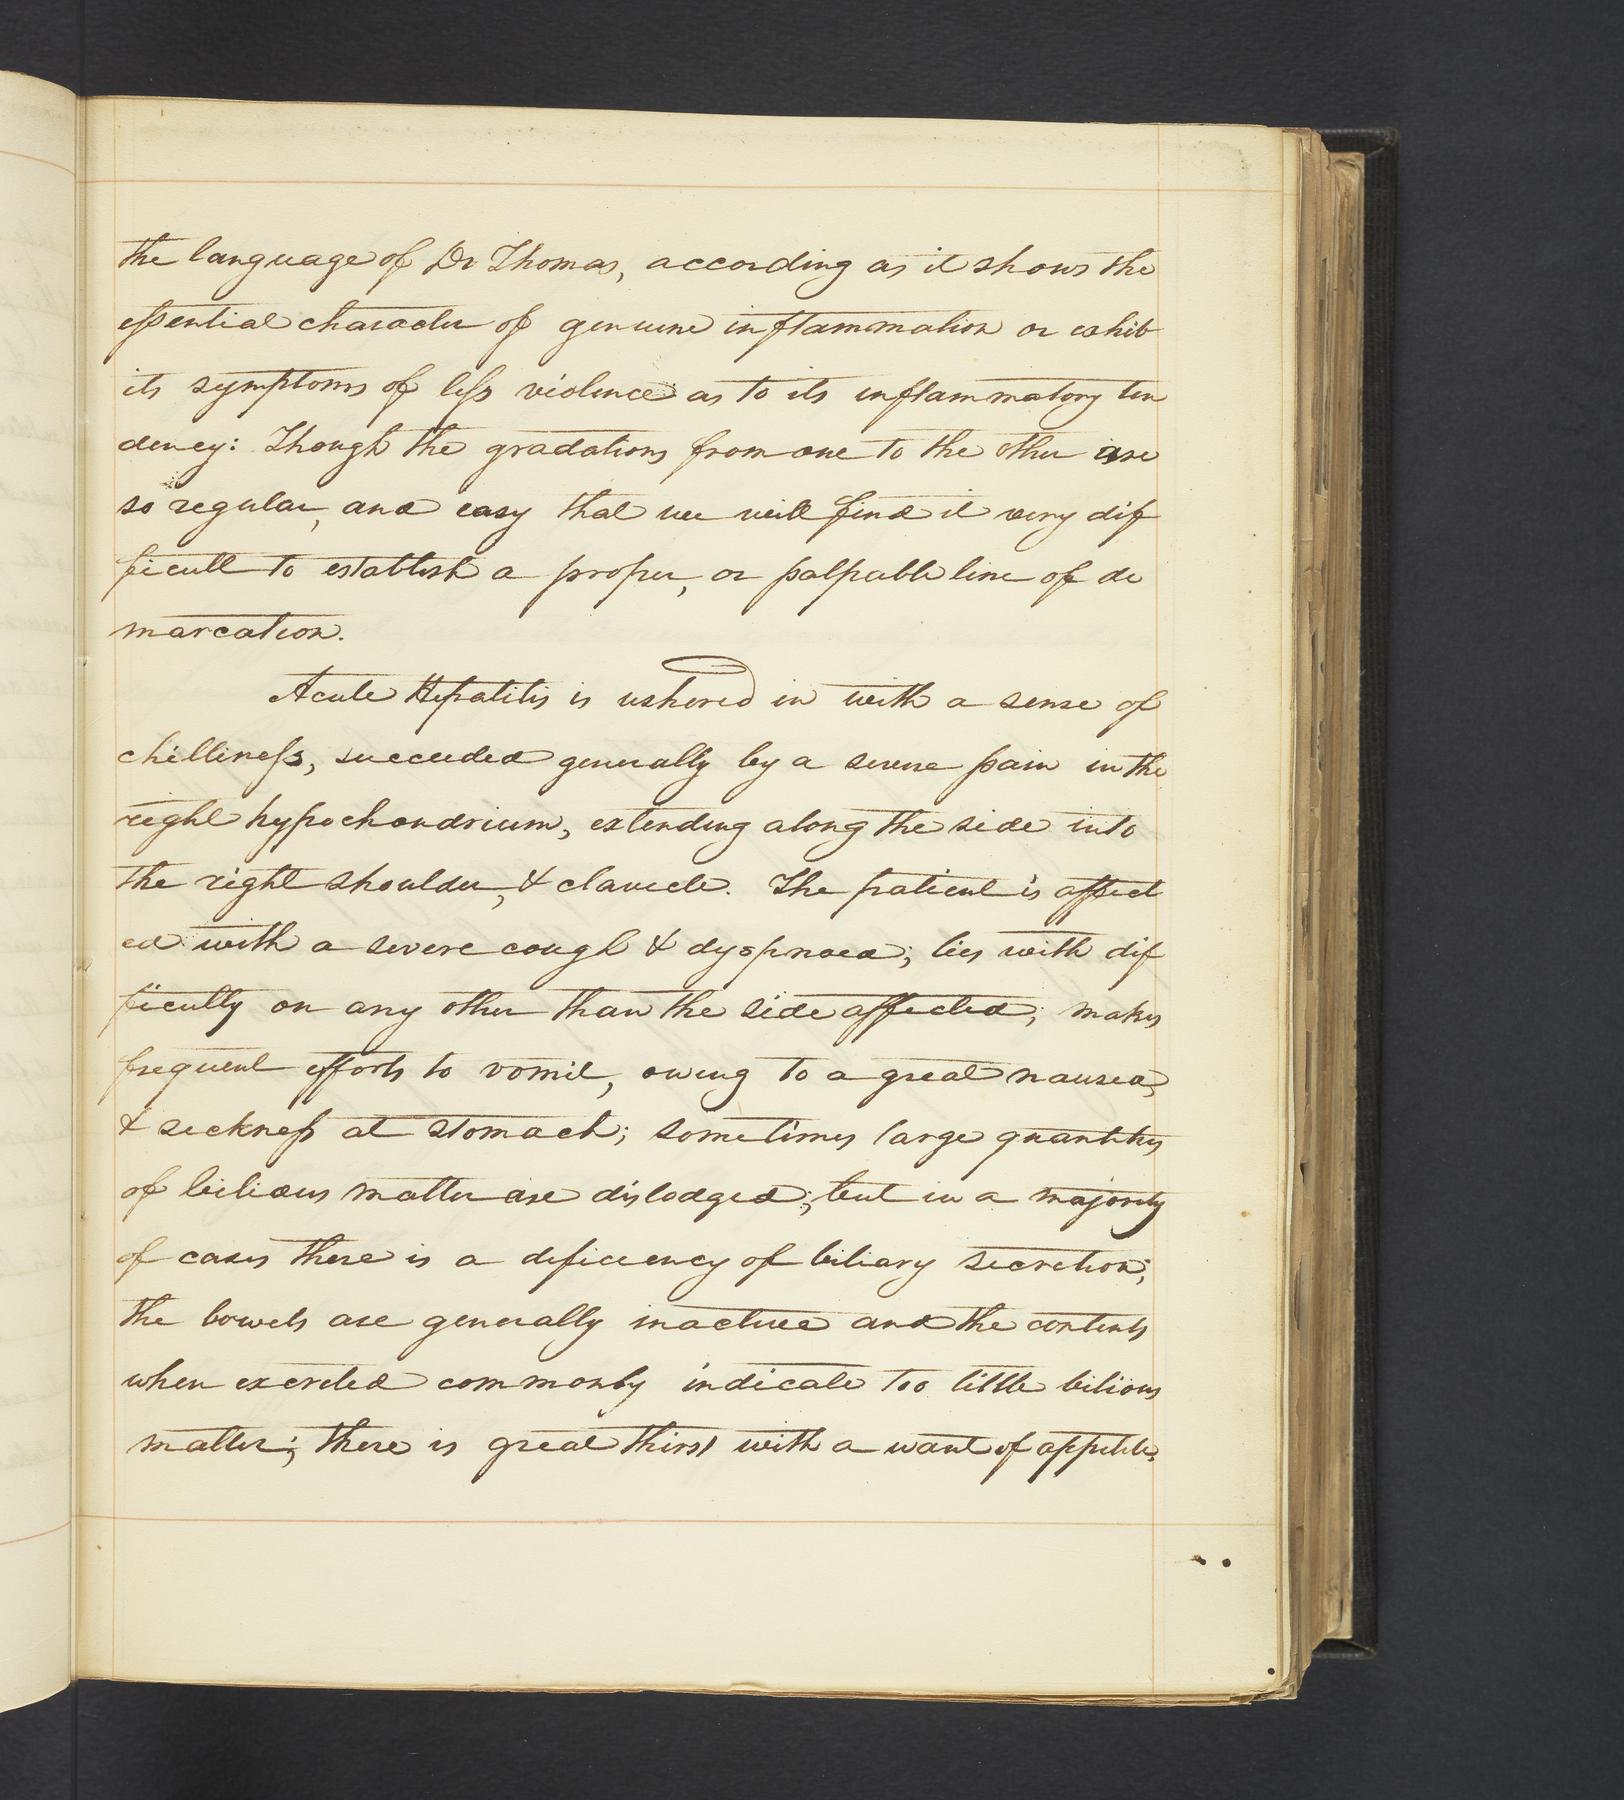 the language of Dr Thomas, according as it shows the
essential character of genuine inflammation or exhib
its symptoms of less violence as to its inflammatory ten
dency: Though the gradations from one to the other are
so regular, and easy that we will find it very dif
ficult to establish a proper, or palpable line of de
marcation.
Acute Hepatitis is ushered in with a sense of
chilliness, succeeded generally by a severe pain in the
right hypochondrium, extending along the side into
the right shoulder, & clavicle. The patient is affect
ed with a severe cough & dyspnoea; lies with dif
ficulty on any other than the side affected; makes
frequent efforts to vomit, owing to a great nausea,
& sickness at stomach; sometimes large quantities
of bilious matter are dislodged; but in a majority
of cases there is a deficiency of biliary secretion;
the bowels are generally inactive and the contents
when excreted commonly indicate too little bilious
matter; there is great thirst with a want of appetite.